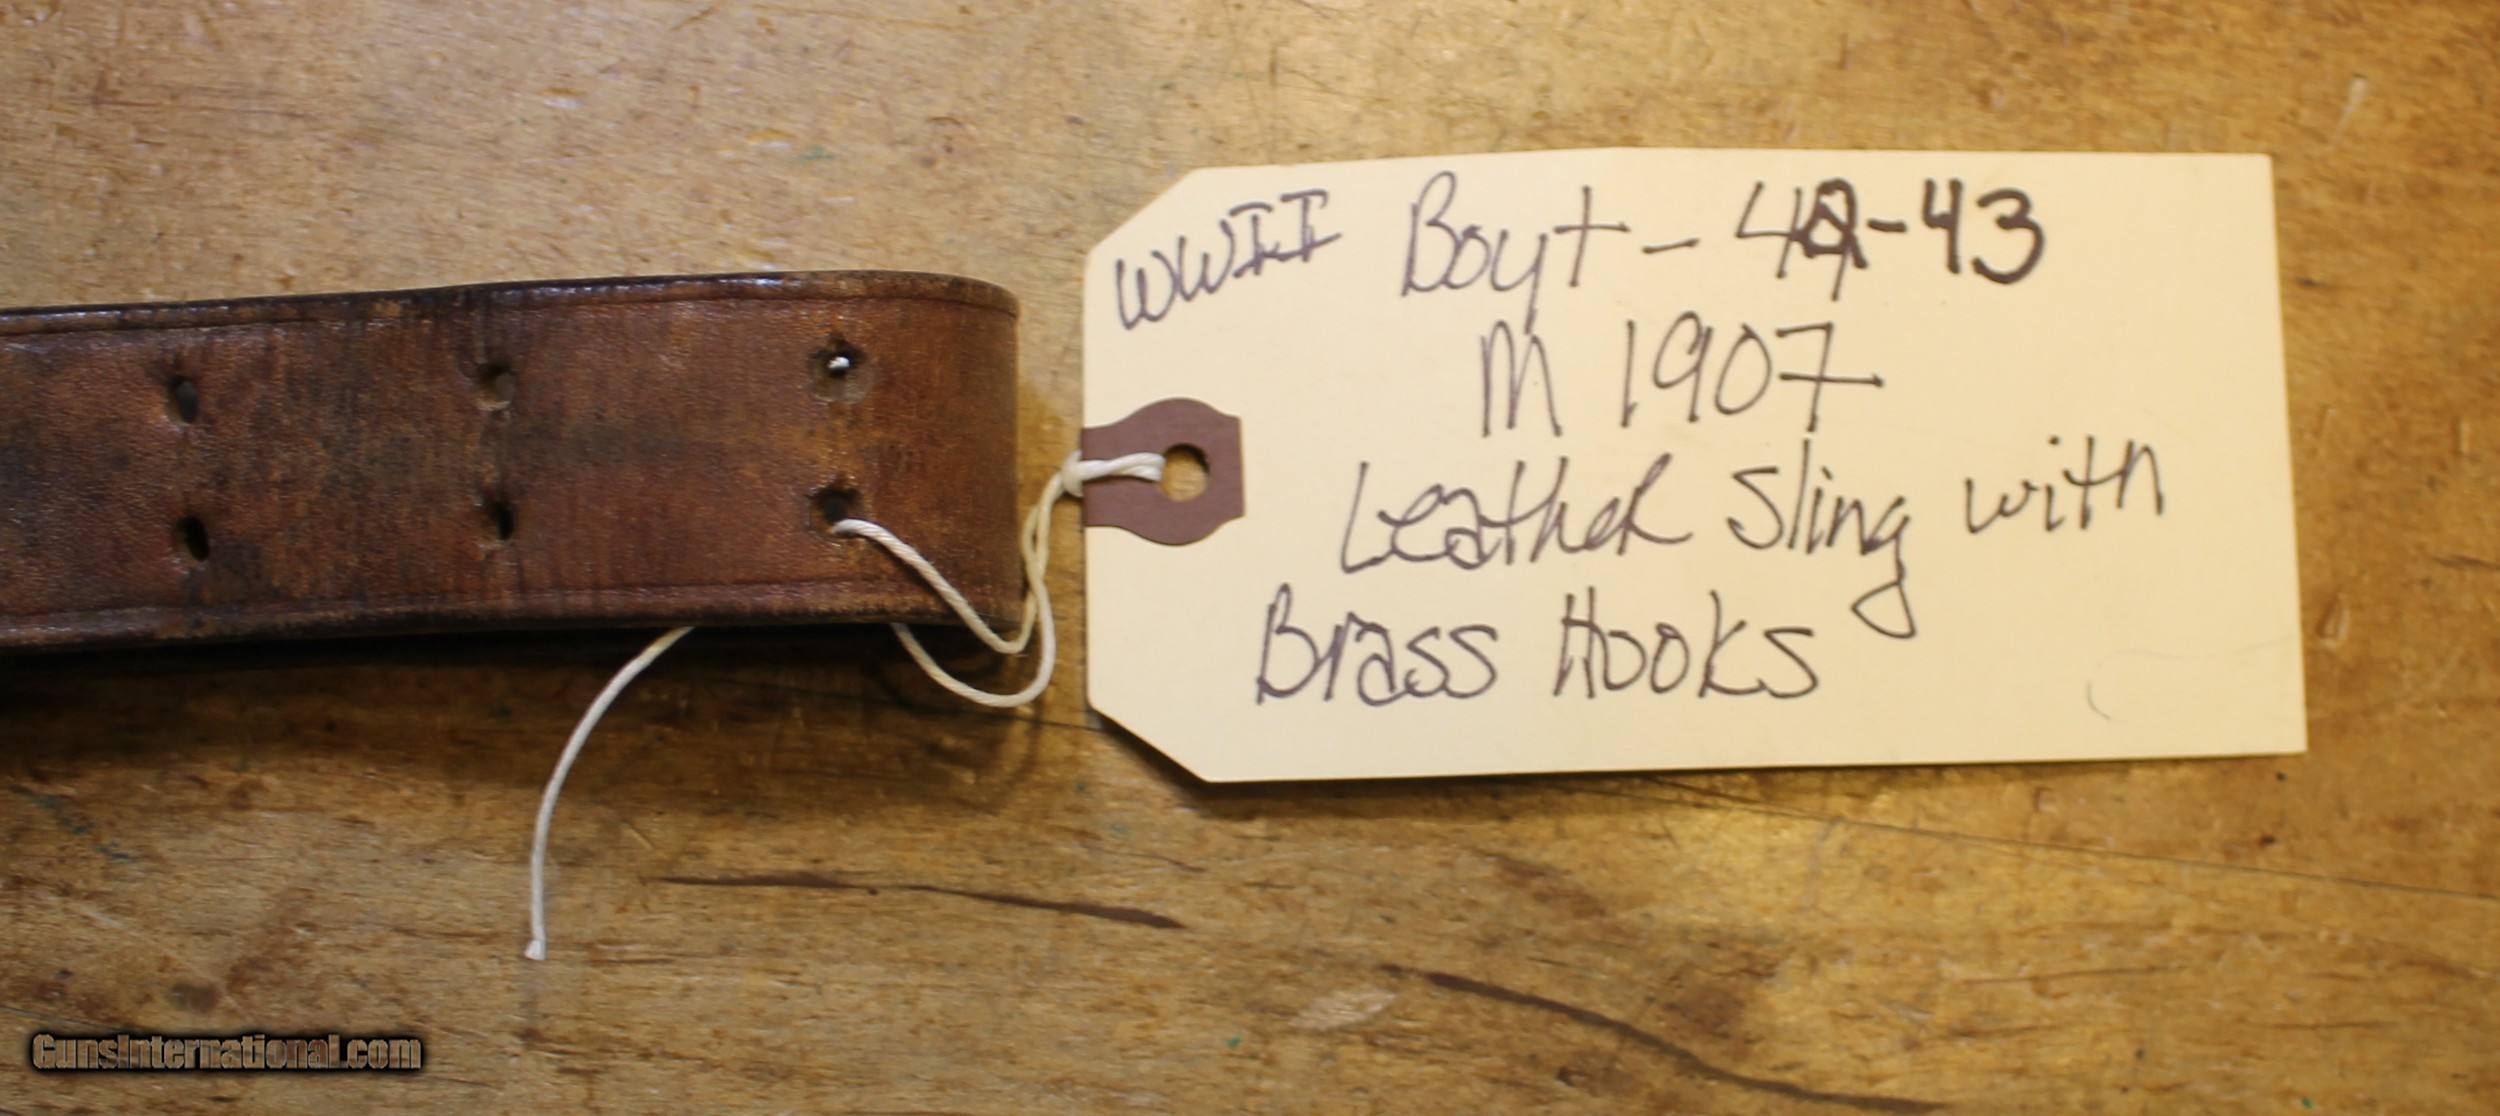 WWII Boyt - 42-43
M 1907
Leather Sling with
Brass Hooks
GunsInternational.com